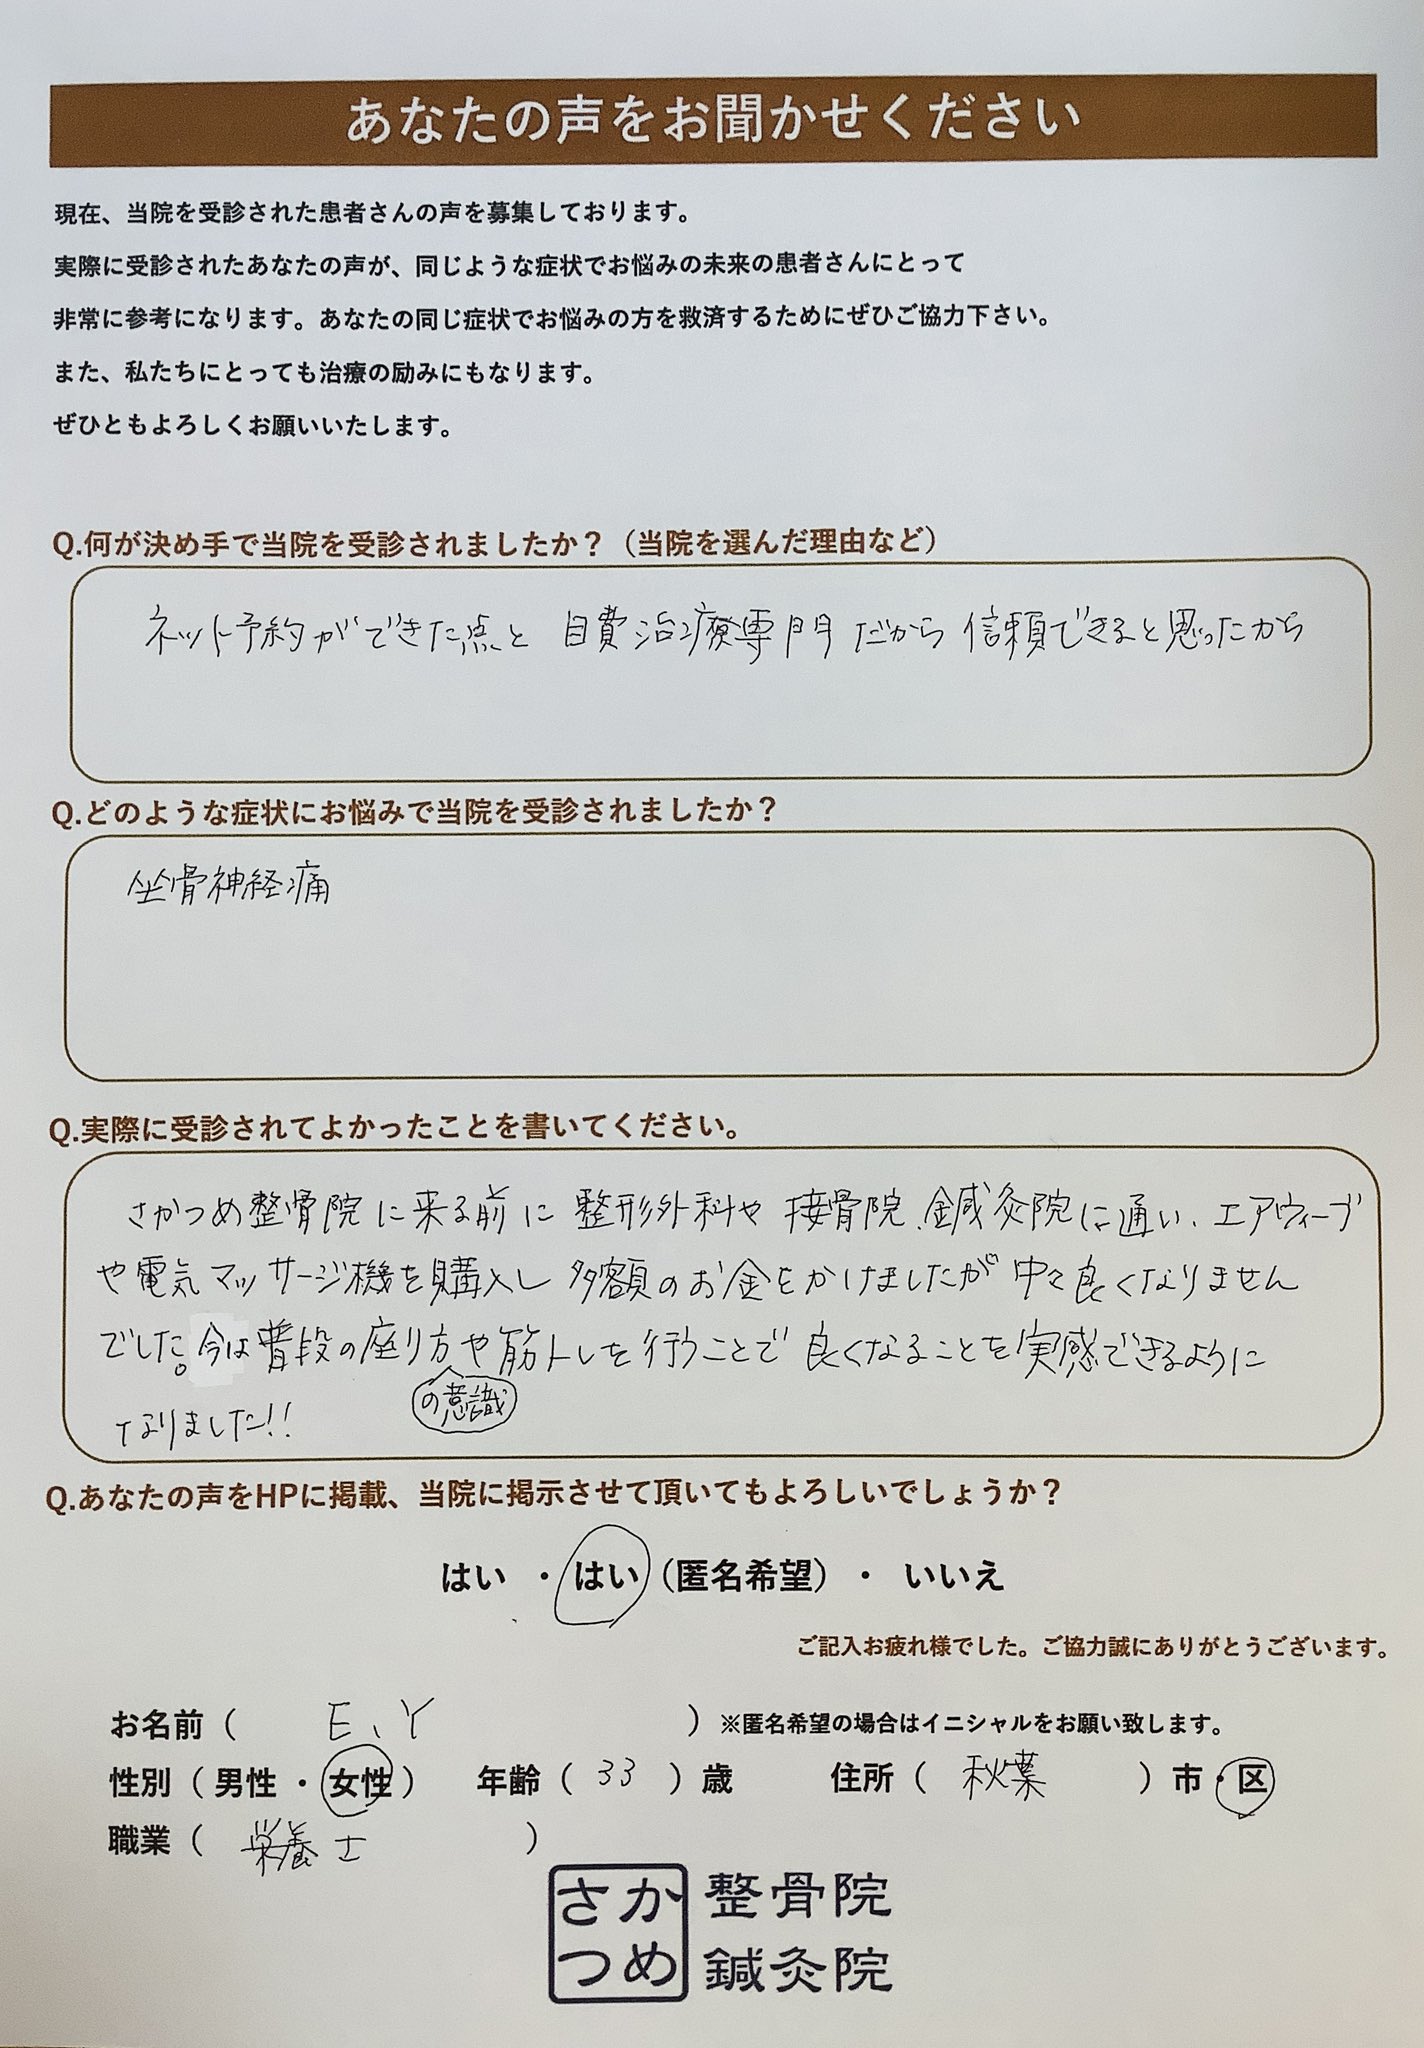 あなたの声をお聞かせください
現在、当院を受診された患者さんの声を募集しております。
実際に受診されたあなたの声が、同じような症状でお悩みの未来の患者さんにとって
非常に参考になります。あなたの同じ症状でお悩みの方を救済するためにぜひご協力下さい。
また、私たちにとっても治療の励みにもなります。
ぜひともよろしくお願いいたします。
Q.何が決め手で当院を受診されましたか？（当院を選んだ理由など）
ネット予約ができた点と 自費治療専門だから信頼できると思ったから
Q.どのような症状にお悩みで当院を受診されましたか？
坐骨神経痛
Q.実際に受診されてよかったことを書いてください。
さかつめ整骨院に来る前に整形外科や接骨院、鍼灸院に通い、エアウィーブ
や電気マッサージ機を購入し多額のお金をかけましたが中々良くなりません
でした。今は普段の座り方や筋トレを行うことで良くなることを実感できるように
の意識
なりました!!
Q.あなたの声をHPに掲載、当院に掲示させて頂いてもよろしいでしょうか？
はい ・ はい（匿名希望）・ いいえ
ご記入お疲れ様でした。ご協力誠にありがとうございます。
お名前（ E、Y ）※匿名希望の場合はイニシャルをお願い致します。
性別（男性 ・ 女性） 年齢（ 33 ）歳 住所（ 秋葉 ）市・区
職業（ 栄養士 ）
さか 整骨院
つめ 鍼灸院